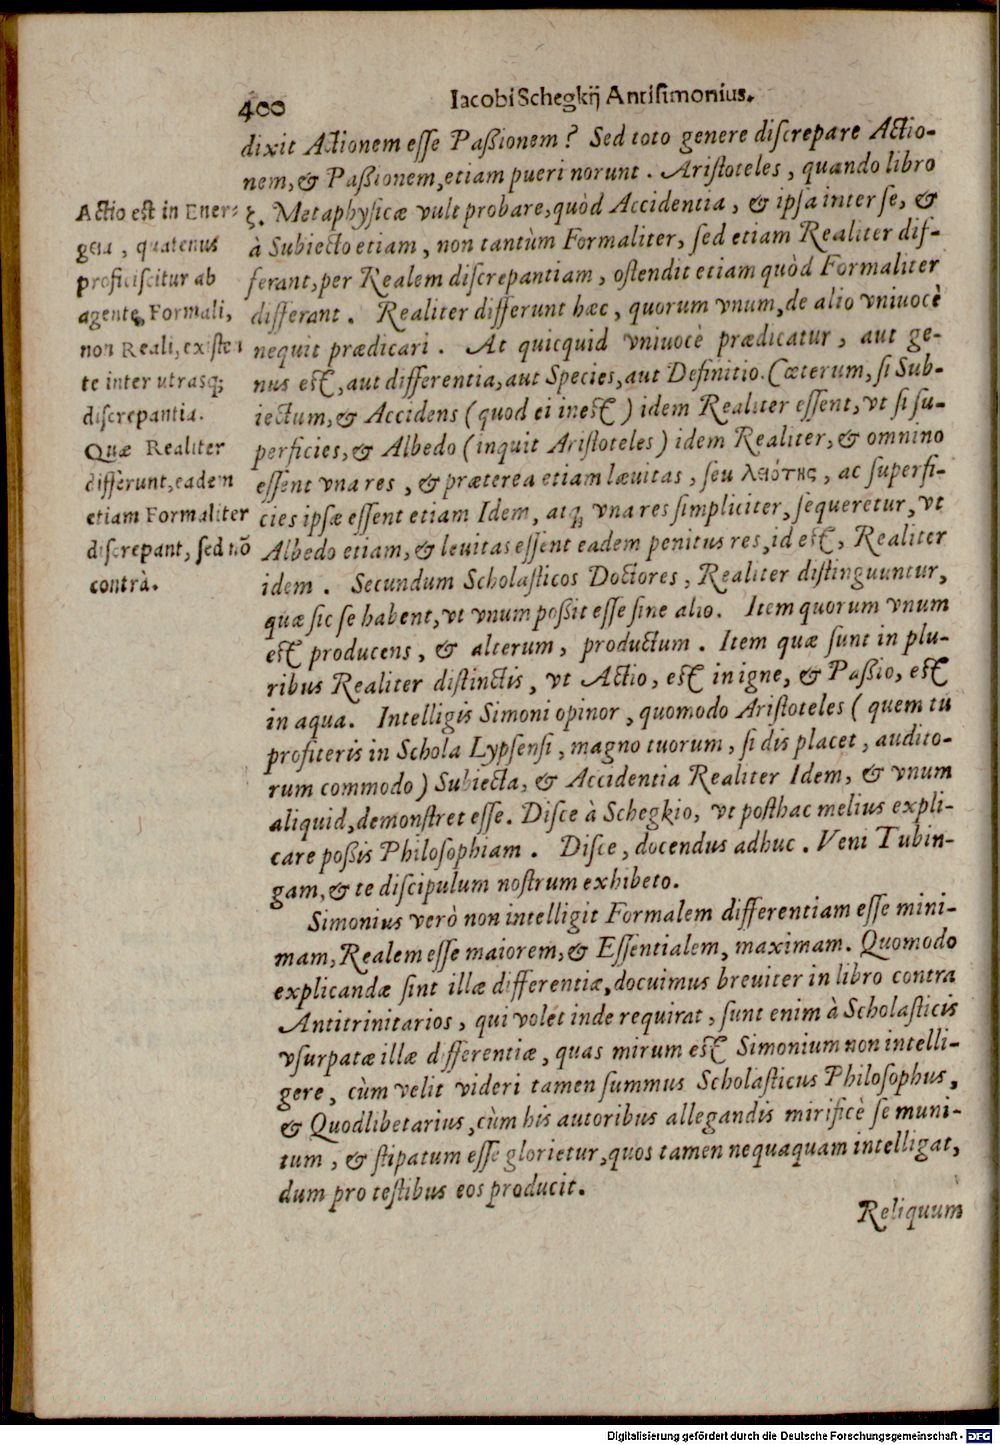 400
Iacobi Schegkij Antisimonius.
dixit Actionem esse Paßionem? Sed toto genere discrepare Actio-
nem, & Paßionem, etiam pueri norunt. Aristoteles, quando libro
ζ. Metaphysicæ vult probare, quòd Accidentia, & ipsa inter se, &
à Subiecto etiam, non tantùm Formaliter, sed etiam Realiter dif-
ferant, per Realem discrepantiam, ostendit etiam quòd Formaliter
differant. Realiter differunt hæc, quorum vnum, de alio vniuocè
nequit prædicari. At quicquid vniuocè prædicatur, aut ge-
nus est, aut differentia, aut Species, aut Definitio. Cæterum, si Sub-
iectum, & Accidens (quod ei inest) idem Realiter essent, vt si su-
perficies, & Albedo (inquit Aristoteles) idem Realiter, & omnino
essent vna res, & præterea etiam læuitas, seu λειότης, ac superfi-
cies ipsæ essent etiam Idem, atq; vna res simpliciter, sequeretur, vt
Albedo etiam, & leuitas essent eadem penitus res, id est, Realiter
idem. Secundum Scholasticos Doctores, Realiter distinguuntur,
quæ sic se habent, vt vnum poßit esse sine alio. Item quorum vnum
est producens, & alterum, productum. Item quæ sunt in plu-
ribus Realiter distinctis, vt Actio, est in igne, & Paßio, est
in aqua. Intelligis Simoni opinor, quomodo Aristoteles (quem tu
profiteris in Schola Lypsensi, magno tuorum, si dis placet, audito-
rum commodo) Subiecta, & Accidentia Realiter Idem, & vnum
aliquid, demonstret esse. Disce à Schegkio, vt posthac melius expli-
care poßis Philosophiam. Disce, docendus adhuc. Veni Tubin-
gam, & te discipulum nostrum exhibeto.
Simonius verò non intelligit Formalem differentiam esse mini-
mam, Realem esse maiorem, & Essentialem, maximam. Quomodo
explicandæ sint illæ differentiæ, docuimus breuiter in libro contra
Antitrinitarios, qui volet inde requirat, sunt enim à Scholasticis
vsurpatæ illæ differentiæ, quas mirum est Simonium non intelli-
gere, cùm velit videri tamen summus Scholasticus Philosophus,
& Quodlibetarius, cùm his autoribus allegandis mirificè se muni-
tum, & stipatum esse glorietur, quos tamen nequaquam intelligat,
dum pro testibus eos producit.
Reliquum
Actio est in Ener-
geia, quatenus
proficiscitur ab
agente, Formali,
non Reali, existen
te inter utrasq;
discrepantia.
Quæ Realiter
differunt, eadem
etiam Formaliter
discrepant, sed nõ
contrà.
Digitalisierung gefördert durch die Deutsche Forschungsgemeinschaft - DFG